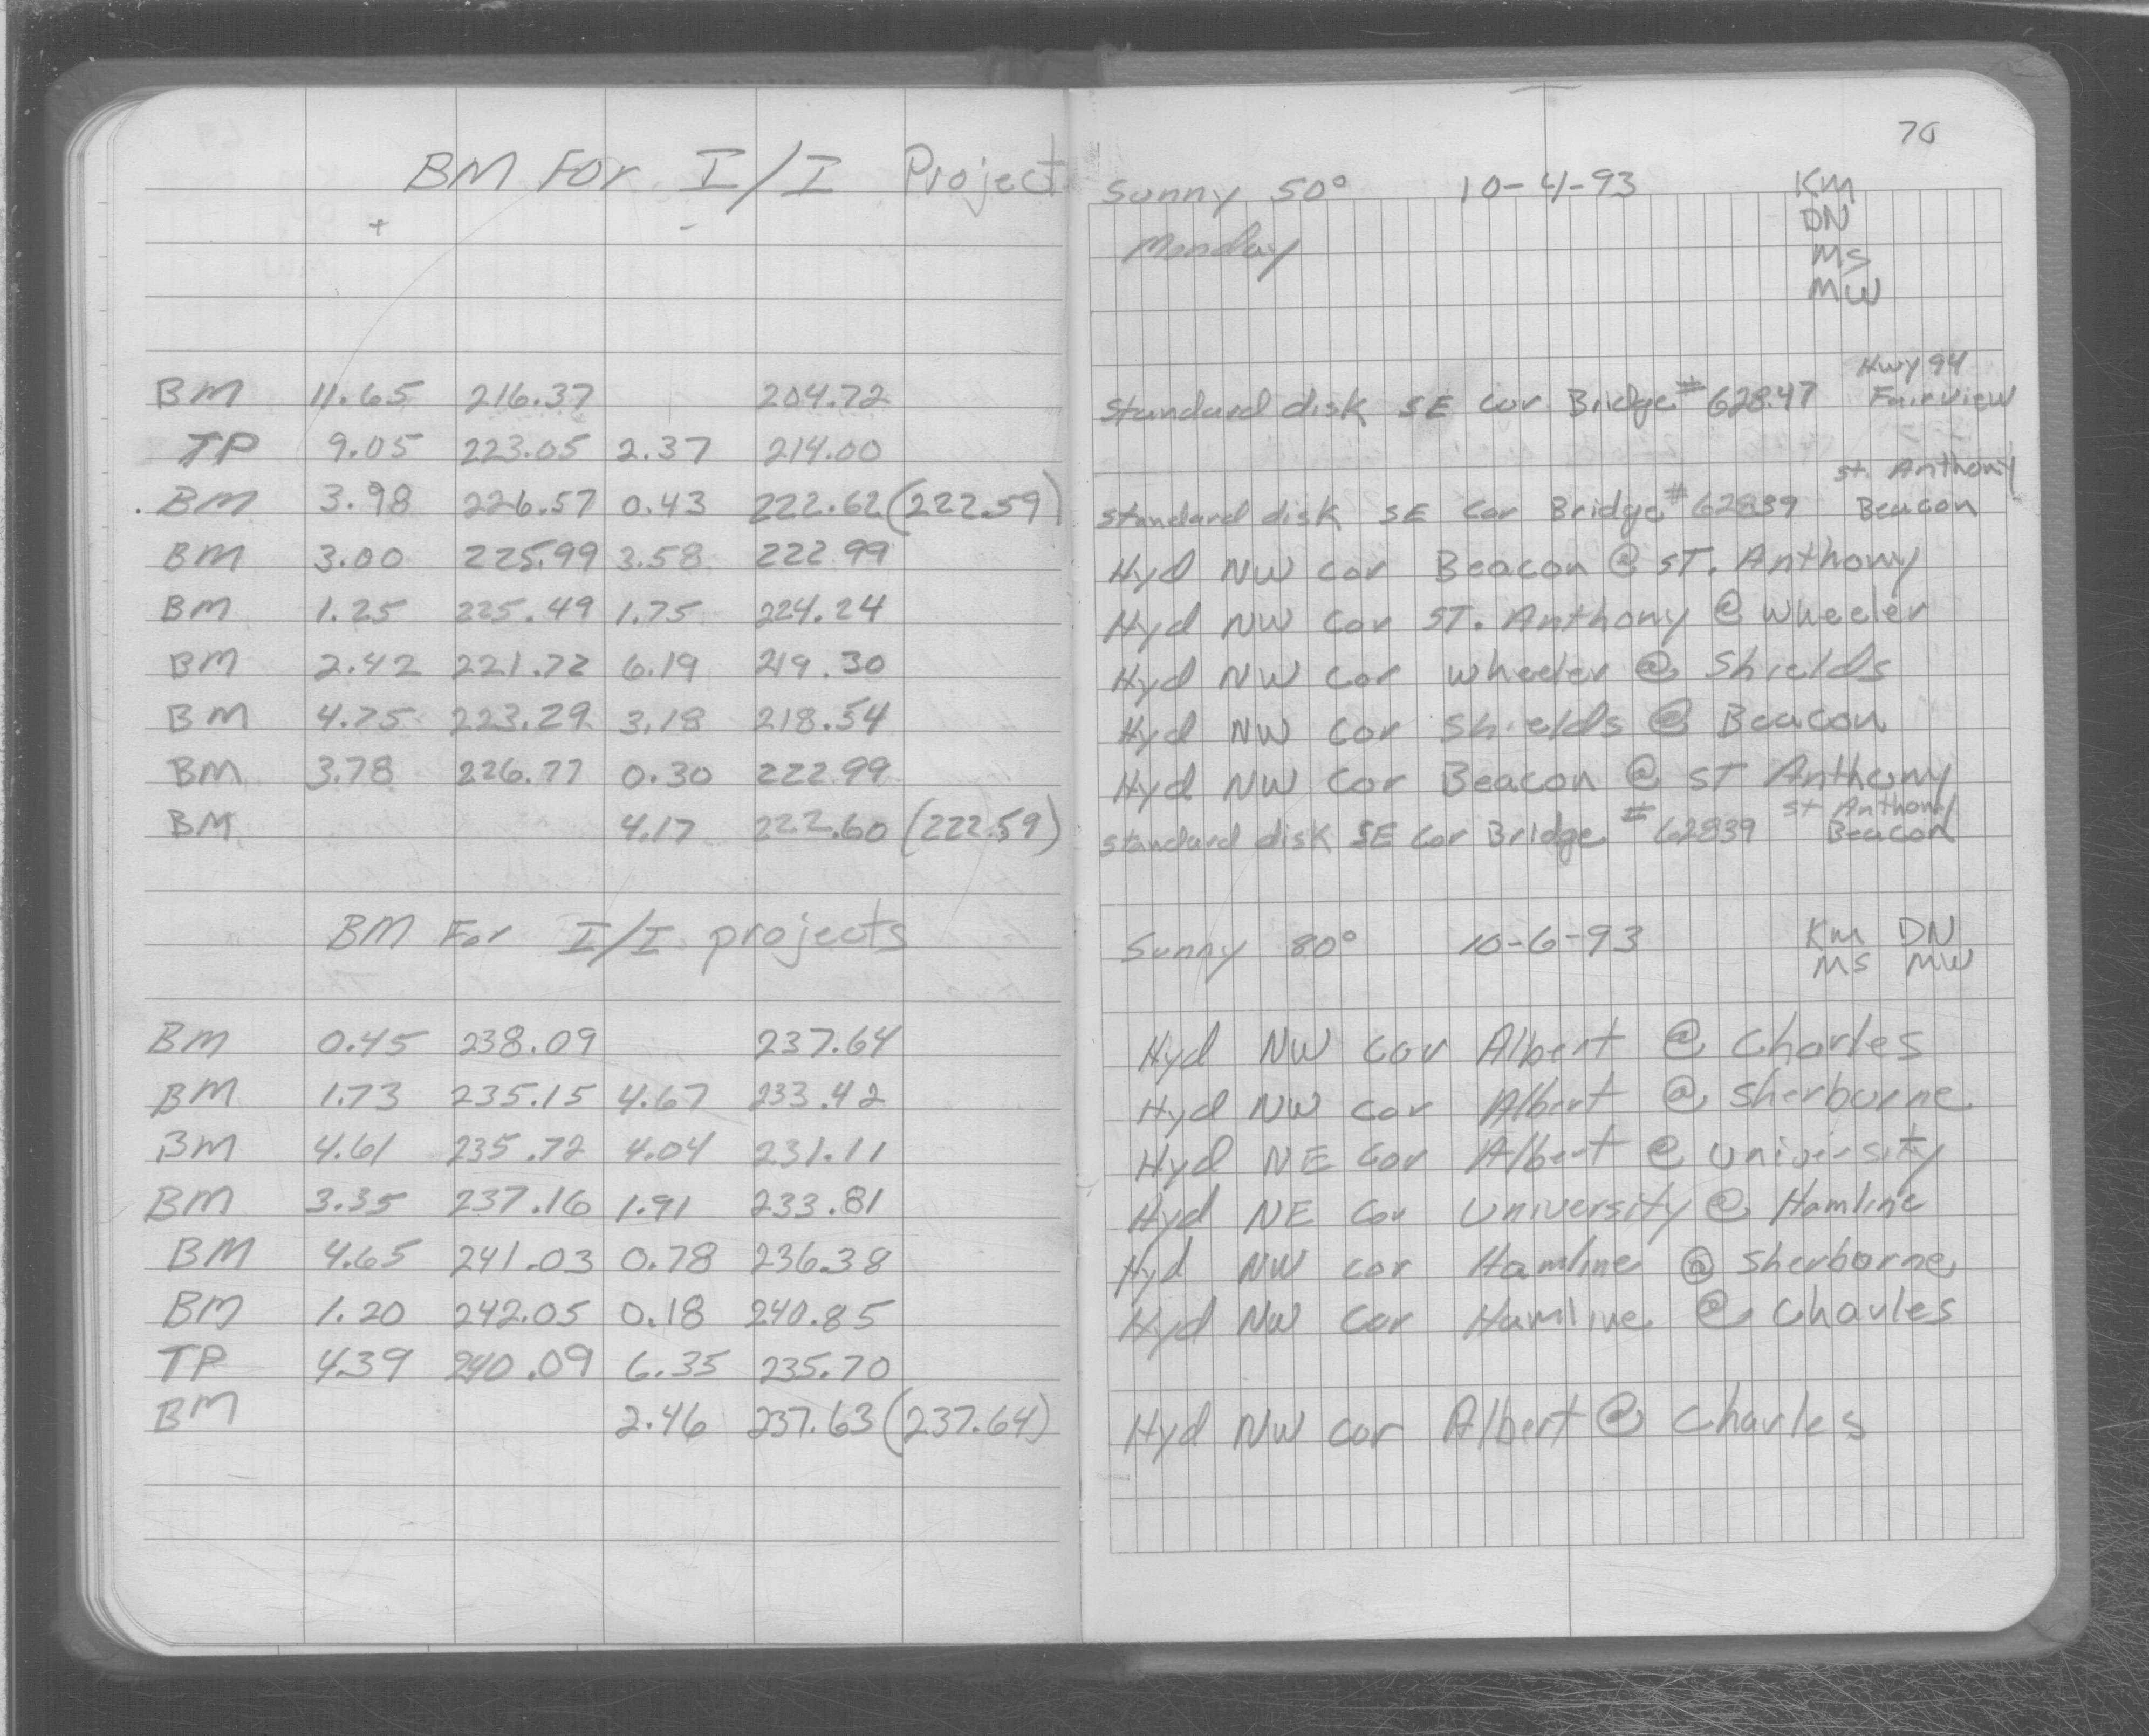 BM For I/I Project
+ -
BM 11.65 216.37 204.72
TP 9.05 223.05 2.37 214.00
BM 3.98 226.57 0.43 222.62 (222.59)
BM 3.00 225.99 3.58 222.99
BM 1.25 225.49 1.75 224.24
BM 2.42 221.72 6.19 219.30
BM 4.75 223.29 3.18 218.54
BM 3.78 226.77 0.30 222.99
BM 4.17 222.60 (222.59)
BM For I/I projects
BM 0.45 238.09 237.64
BM 1.73 235.15 4.67 233.42
BM 4.61 235.72 4.04 231.11
BM 3.35 237.16 1.91 233.81
BM 4.65 241.03 0.78 236.38
BM 1.20 242.05 0.18 240.85
TP 4.39 240.09 6.35 235.70
BM 2.46 237.63 (237.64)
70
Sunny 50° 10-4-93 KM
DN
Monday MS
MW
Hwy 94
Standard disk SE Cor Bridge # 62847 Fairview
St. Anthony
Standard disk SE Cor Bridge # 62839 Beacon
Hyd NW cor Beacon @ ST. Anthony
Hyd NW Cor ST. Anthony @ Wheeler
Hyd NW Cor Wheeler @ Shields
Hyd NW Cor Shields @ Beacon
Hyd NW Cor Beacon @ ST Anthony
St Anthony
Standard disk SE Cor Bridge # 62839 Beacon
Sunny 80° 10-6-93 KM DN
MS MW
Hyd NW cor Albert @ Charles
Hyd NW cor Albert @ Sherburne
Hyd NE Cor Albert @ University
Hyd NE Cor University @ Hamline
Hyd NW cor Hamline @ Sherborne
Hyd NW Cor Hamline @ Charles
Hyd NW cor Albert @ Charles